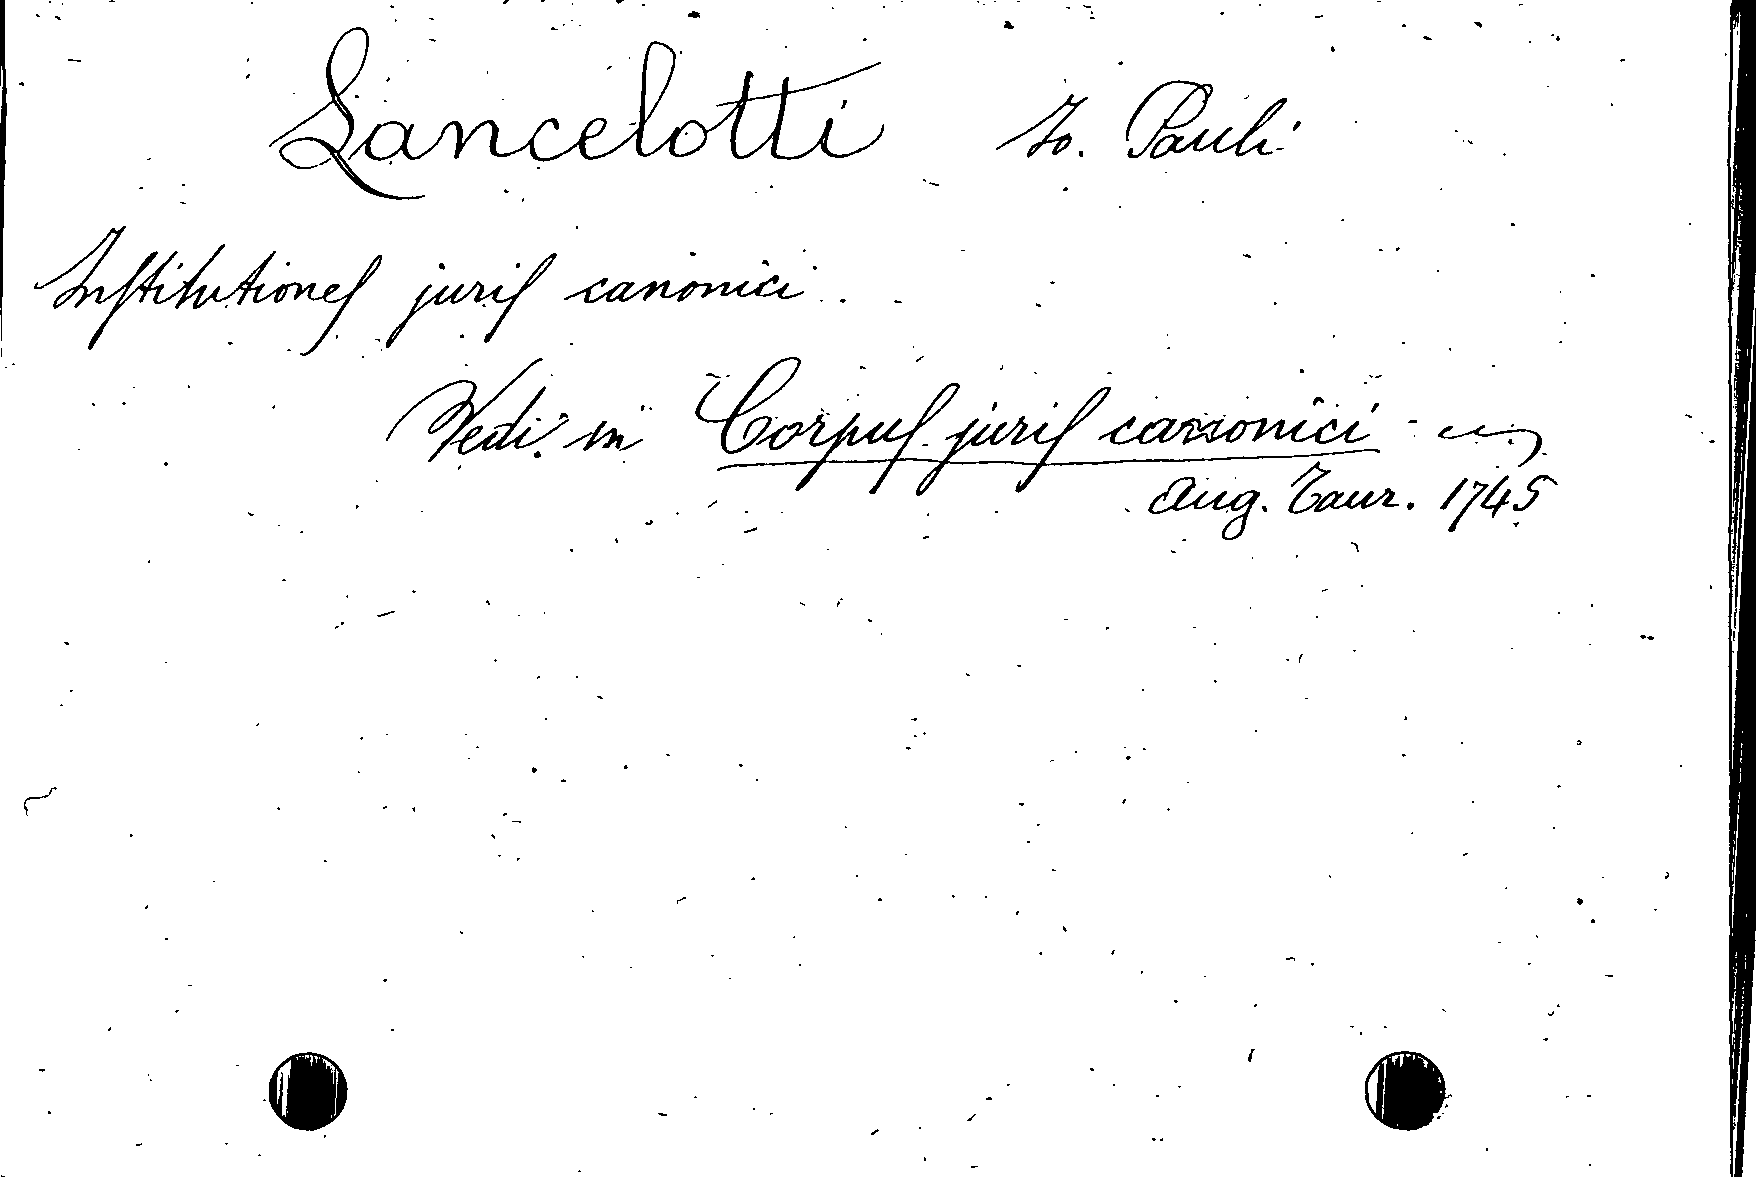 Lancelotti Jo. Pauli
Inſtitutioneſ juriſ canonici.
Vedi: in Corpuſ juriſ canonici
Aug. Taur. 1745